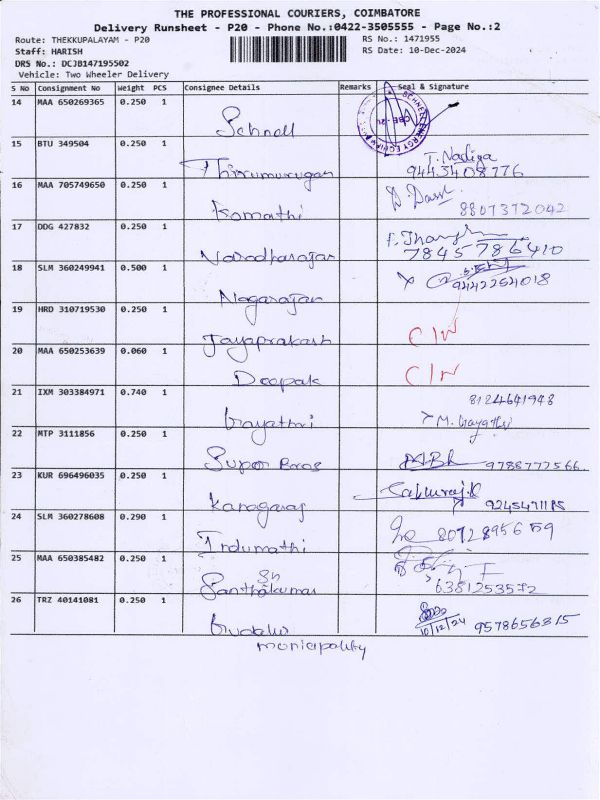 THE PROFESSIONAL COURIERS, COIMBATORE
Delivery Runsheet - P20 - Phone No.:0422-3505555 - Page No.:2
Route: THEKKUPALAYAM - P20
RS No.: 1471955
Staff: HARISH
RS Date: 10-Dec-2024
DRS No.: DCJB147195502
Vehicle: Two Wheeler Delivery
S No Consignment No Weight PCS Consignee Details Remarks Seal & Signature
14 MAA 650269365 0.250 1
Schnell
15 BTU 349504 0.250 1
T. Nadiya
Thirumurugan 9443408776
16 MAA 705749650 0.250 1
Gomathi 8807372042
17 DDG 427832 0.250 1
Varadharajan 7845786410
18 SLM 360249941 0.500 1
Nagarajan 9442254018
19 HRD 310719530 0.250 1
Jayaprakash
20 MAA 650253639 0.060 1
Deepak
21 IXM 303384971 0.740 1
8124641948
Gayathri M. Gayathri
22 MTP 3111856 0.250 1
Super 9788777566
23 KUR 696496035 0.250 1
Kanagaraj
24 SLM 360278608 0.290 1
Indumathi
25 MAA 650385482 0.250 1
Santhakumar
26 TRZ 40141081 0.250 1
10/12/24 9578656315
municipality